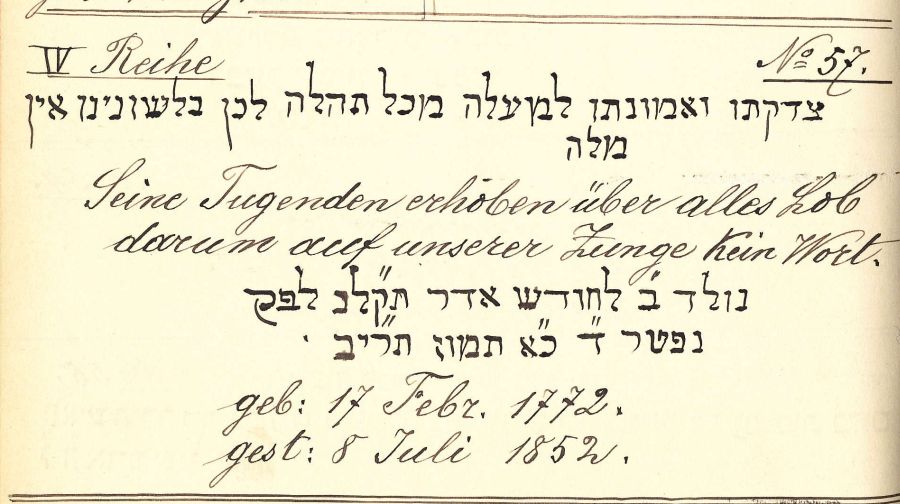 IV Reihe No 57.
צדקתו ואמונתו למעלה מכל תהלה לכן בלשונינו אין
מלה
Seine Tugenden erhoben über alles Lob
darum auf unserer Zunge kein Wort.
נולד ב' לחודש אדר תק״לב לפק
נפטר ד״ כ״א תמוז תר״יב
geb: 17 Febr. 1772.
gest: 8 Juli 1852.